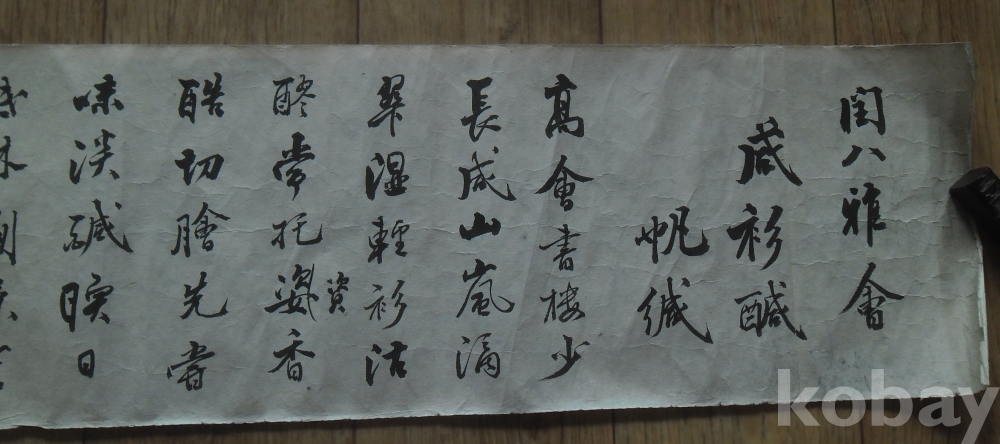 閏八雅會
咸衫醎
帆緘
高會書樓少
長咸山嵐滴
翠濕輕衫沽
醪常托資香
酷切膾先嘗
味淡鹹暎日
kobay